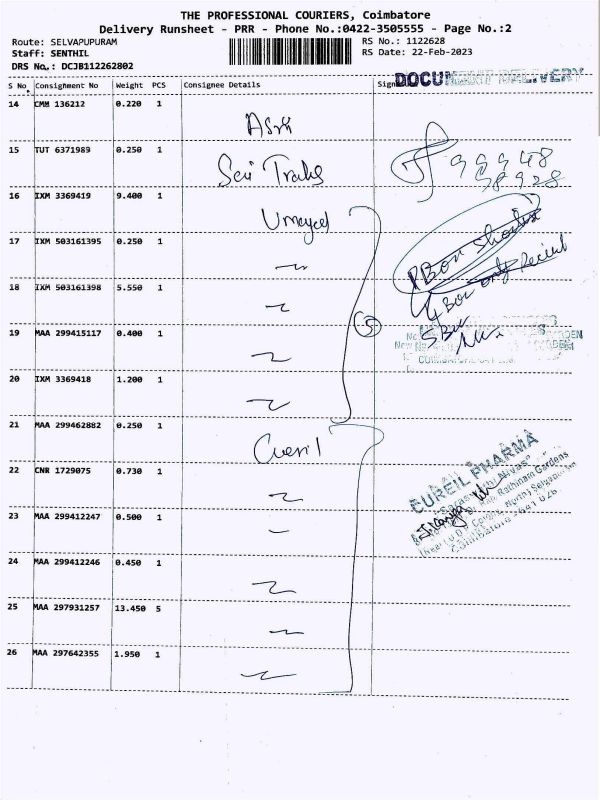 THE PROFESSIONAL COURIERS, Coimbatore
Delivery Runsheet - PRR - Phone No.:0422-3505555 - Page No.:2
Route: SELVAPUPURAM
Staff: SENTHIL
DRS No.: DCJB112262802
RS No.: 1122628
RS Date: 22-Feb-2023
DOCUMENT DELIVERY
S No Consignment No Weight PCS Consignee Details
14 CMM 136212 0.220 1
15 TUT 6371989 0.250 1
99948
58928
16 IXM 3369419 9.400 1
17 IXM 503161395 0.250 1
18 IXM 503161398 5.550 1
only
5
19 MAA 299415117 0.400 1
20 IXM 3369418 1.200 1
21 MAA 299462882 0.250 1
22 CNR 1729075 0.730 1
CUREIL PHARMA
Rathinam Gardens
23 MAA 299412247 0.500 1
24 MAA 299412246 0.450 1
25 MAA 297931257 13.450 5
26 MAA 297642355 1.950 1